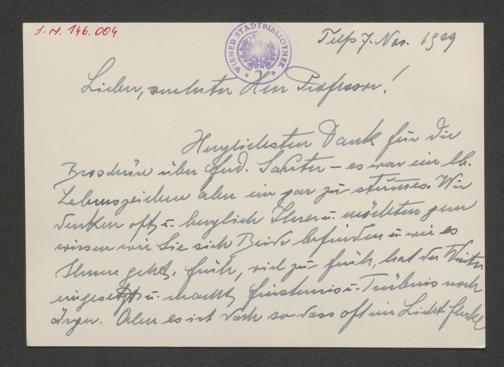 J.N. 146.004
WIENER STADTBIBLIOTHEK
Telfs 7. Nov. 1949
Lieber, verehrter Herr Professor!
Herzlichsten Dank für die
Broschüre über Ferd. Sauter – es war ein lb.
Lebenszeichen aber ein gar zu stummes. Wir
denken oft u. herzlich Ihrer u. möchten gern
wissen wie Sie sich Beide befinden u. wie es
Ihnen geht. Früh, viel zu früh, hat der Winter
eingesetzt u. macht Finsternis u. Trübnis noch
ärger. Aber es ist doch so dass oft ein Licht